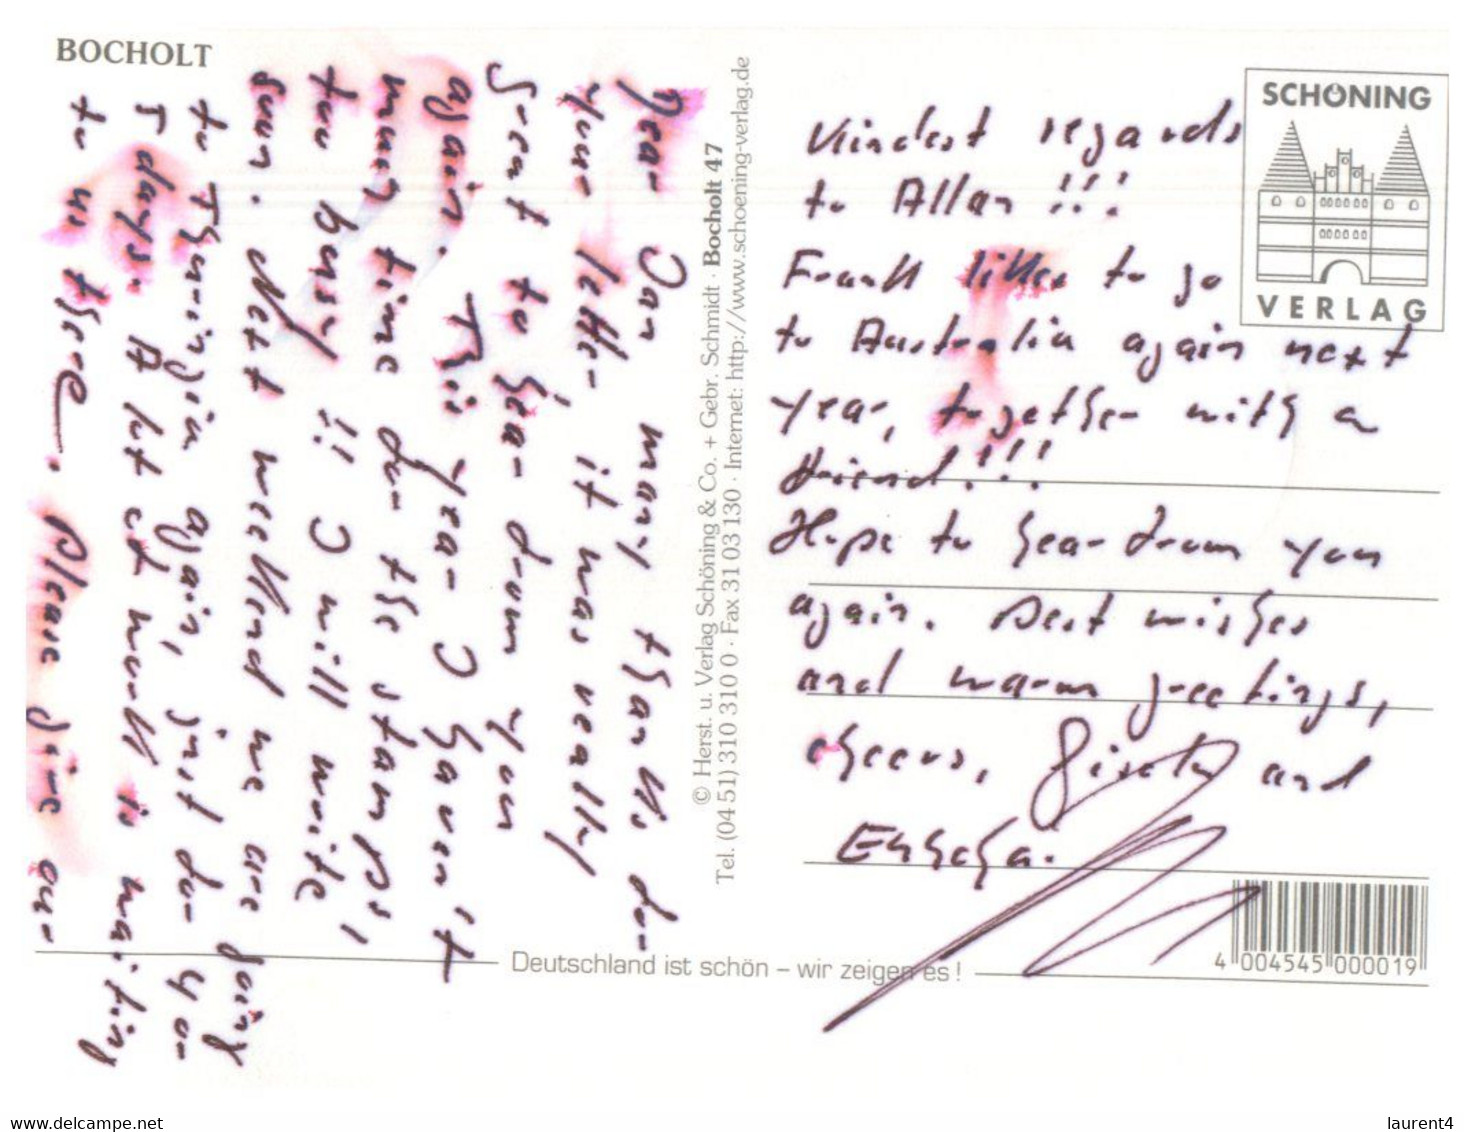 BOCHOLT
Dear Jan many thanks for
your letter it was really
great to hear from you
again. This year I haven't
much time for the stamps,
too busy!! I will write
soon. Next weekend we are going
to Thuringia again, just for 4 or
5 days. A lot of work is waiting
to us there. Please give our
Kindest regards
to Allan!!!
Frank likes to go
to Australia again next
year, together with a
friend!!!
Hope to hear from you
again. Best wishes
and warm greetings,
cheers, Gisela and
© Herst. u. Verlag Schöning & Co. + Gebr. Schmidt · Bocholt 47
Tel. (04 51) 310 310 0 · Fax 31 03 130 · Internet: http://www.schoening-verlag.de
SCHÖNING
VERLAG
Deutschland ist schön – wir zeigen es !
4 004545 000019
delcampe.net
laurent4